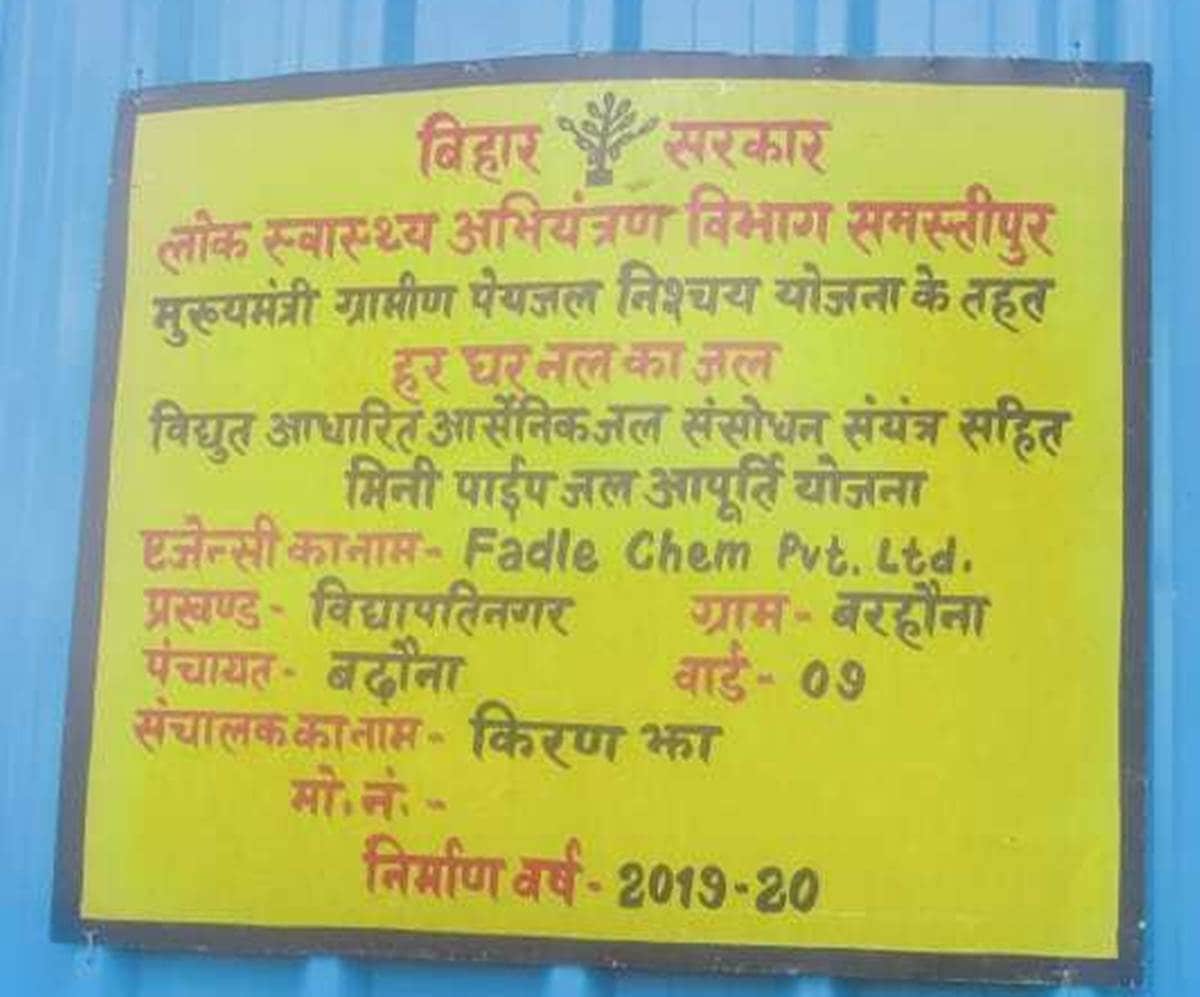 बिहार सरकार
लोक स्वास्थ्य अभियंत्रण विभाग समस्तीपुर
मुख्यमंत्री ग्रामीण पेयजल निश्चय योजना के तहत
हर घर नल का जल
विद्युत आधारित आर्सेनिक जल संसोधन संयंत्र सहित
मिनी पाईप जल आपूर्ति योजना
एजेन्सी का नाम - Fadle Chem Pvt. Ltd.
प्रखण्ड - विद्यापतिनगर ग्राम - बरहौना
पंचायत - बढ़ौना वार्ड - 09
संचालक का नाम - किरण झा
मो. नं. -
निर्माण वर्ष - 2019-20